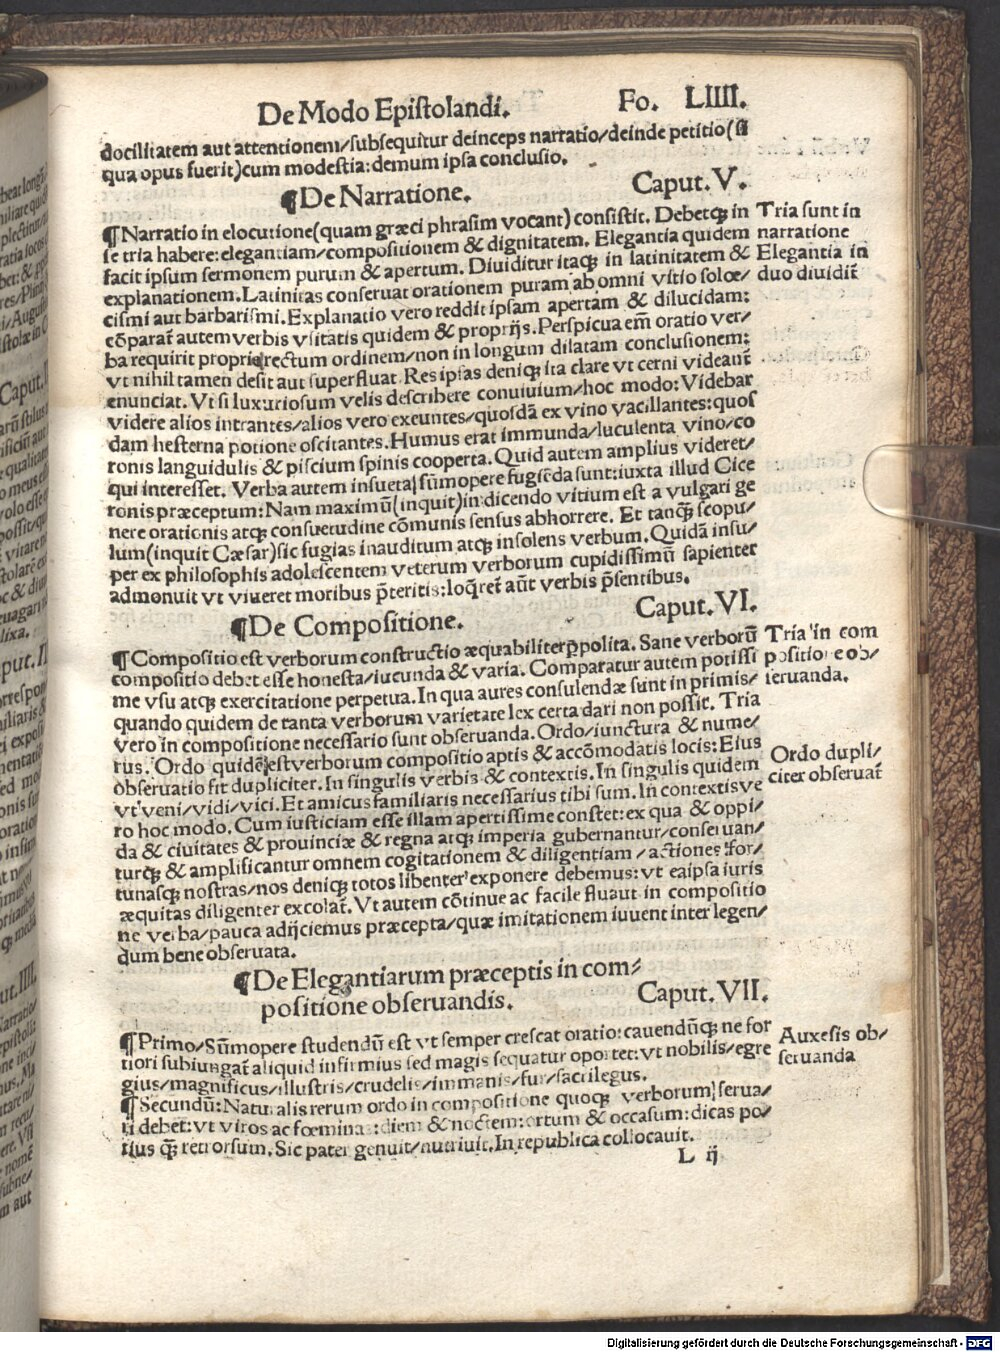 De Modo Epiſtolandi. Fo. LIIII.
docilitatem aut attentionem/ſubſequitur deinceps narratio/deinde petitio(ſi
qua opus fuerit)cum modeſtia:demum ipſa concluſio.
¶De Narratione. Caput.V.
¶Narratio in elocutione(quam græci phraſim vocant) conſiſtit. Debetqȝ in
ſe tria habere:elegantiam/compoſitionem & dignitatem. Elegantia quidem
facit ipſum ſermonem purum & apertum. Diuiditur itaqȝ in latinitatem &
explanationem.Latinitas conſeruat orationem puram ab omni vitio ſolœ/
ciſmi aut barbariſmi.Explanatio vero reddit ipſam apertam & dilucidam:
cōparat̄ autem verbis vſitatis quidem & proprijs.Perſpicua em̄ oratio ver/
ba requirit propria/rectum ordinem/non in longum dilatam concluſionem:
vt nihil tamen deſit aut ſuperfluat. Res ipſas deniqȝ ita clare vt cerni videant̄
enunciat. Vt ſi luxurioſum velis deſcribere conuiuium/hoc modo: Videbar
videre alios intrantes/alios vero exeuntes/quoſdā ex vino vacillantes:quoſ
dam heſterna potione oſcitantes.Humus erat immunda/luculenta vino/co
ronis languidulis & piſcium ſpinis cooperta. Quid autem amplius videret/
qui intereſſet. Verba autem inſueta ſūmopere fugiēda ſunt:iuxta illud Cice
ronis præceptum:Nam maximū(inquit)in dicendo vitium eſt a vulgari ge
nere orationis atqȝ conſuetudine cōmunis ſenſus abhorrere. Et tanqȝ̄ ſcopu/
lum(inquit Cæſar)ſic fugias inauditum atqȝ inſolens verbum. Quidā inſu/
per ex philoſophis adoleſcentem veterum verborum cupidiſſimū ſapienter
admonuit vt viueret moribus p̄teritis:loq̄ret̄ aūt verbis p̄ſentibus.
¶De Compoſitione. Caput.VI.
¶Compoſitio eſt verborum conſtructio æquabiliter ꝑpolita. Sane verborū
compoſitio debet eſſe honeſta/iucunda & varia. Comparatur autem potiſſi
me vſu atqȝ exercitatione perpetua.In qua aures conſulendæ ſunt in primis/
quando quidem de tanta verborum varietate lex certa dari non poſſit. Tria
vero in compoſitione neceſſario ſunt obſeruanda. Ordo/iunctura & nume/
rus. Ordo quidē eſt verborum compoſitio aptis & accōmodatis locis:Eius
obſeruatio fit dupliciter.In ſingulis verbis & contextis.In ſingulis quidem
vt veni/vidi/vici.Et amicus familiaris neceſſarius tibi ſum.In contextis ve
ro hoc modo. Cum iuſticiam eſſe illam apertiſſime conſtet:ex qua & oppi/
da & ciuitates & prouinciæ & regna atqȝ imperia gubernantur/conſeruan/
turqȝ & amplificantur omnem cogitationem & diligentiam/actiones for/
tunaſqȝ noſtras/nos deniqȝ totos libenter exponere debemus:vt ea ipſa iuris
æquitas diligenter excolat̄. Vt autem cōtinue ac facile fluant in compoſitio
ne verba/pauca adijciemus præcepta/quæ imitationem iuuent inter legen/
dum bene obſeruata.
¶De Elegantiarum præceptis in com⸗
poſitione obſeruandis. Caput.VII.
¶Primo/Sūmopere ſtudendū eſt vt ſemper creſcat oratio:cauendūqȝ ne for
tiori ſubiungat̄ aliquid infirmius ſed magis ſequatur oportet:vt nobilis/egre
gius/magnificus/illuſtris/crudelis/immanis/fur/ſacrilegus.
¶Secundū:Naturalis rerum ordo in compoſitione quoqȝ verborum ſerua/
ri debet:vt viros ac fœminas:diem & noctem:ortum & occaſum:dicas po/
tius qȝ̄ retrorſum.Sic pater genuit/nutriuit.In republica collocauit.
L ij
Tria ſunt in
narratione
Elegantia in
duo diuidit̄
Tria in com
poſitione ob/
ſeruanda.
Ordo dupli/
citer obſeruat̄
Auxeſis ob/
ſeruanda
Digitalisierung gefördert durch die Deutsche Forschungsgemeinschaft - DFG